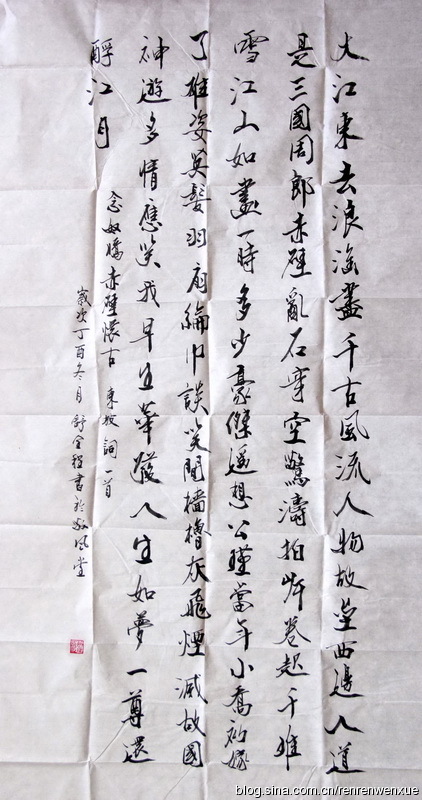 大江東去浪淘盡千古風流人物故壘西邊人道
是三國周郎赤壁亂石穿空驚濤拍岸卷起千堆
雪江山如畫一時多少豪傑遙想公瑾當年小喬初嫁
了雄姿英髮羽扇綸巾談笑間檣櫓灰飛煙滅故國
神遊多情應笑我早生華髮人生如夢一尊還
酹江月
念奴嬌赤壁懷古 東坡詞一首
歲次丁酉冬月 舒金書於風堂
blog.sina.com.cn/renrenwenxue